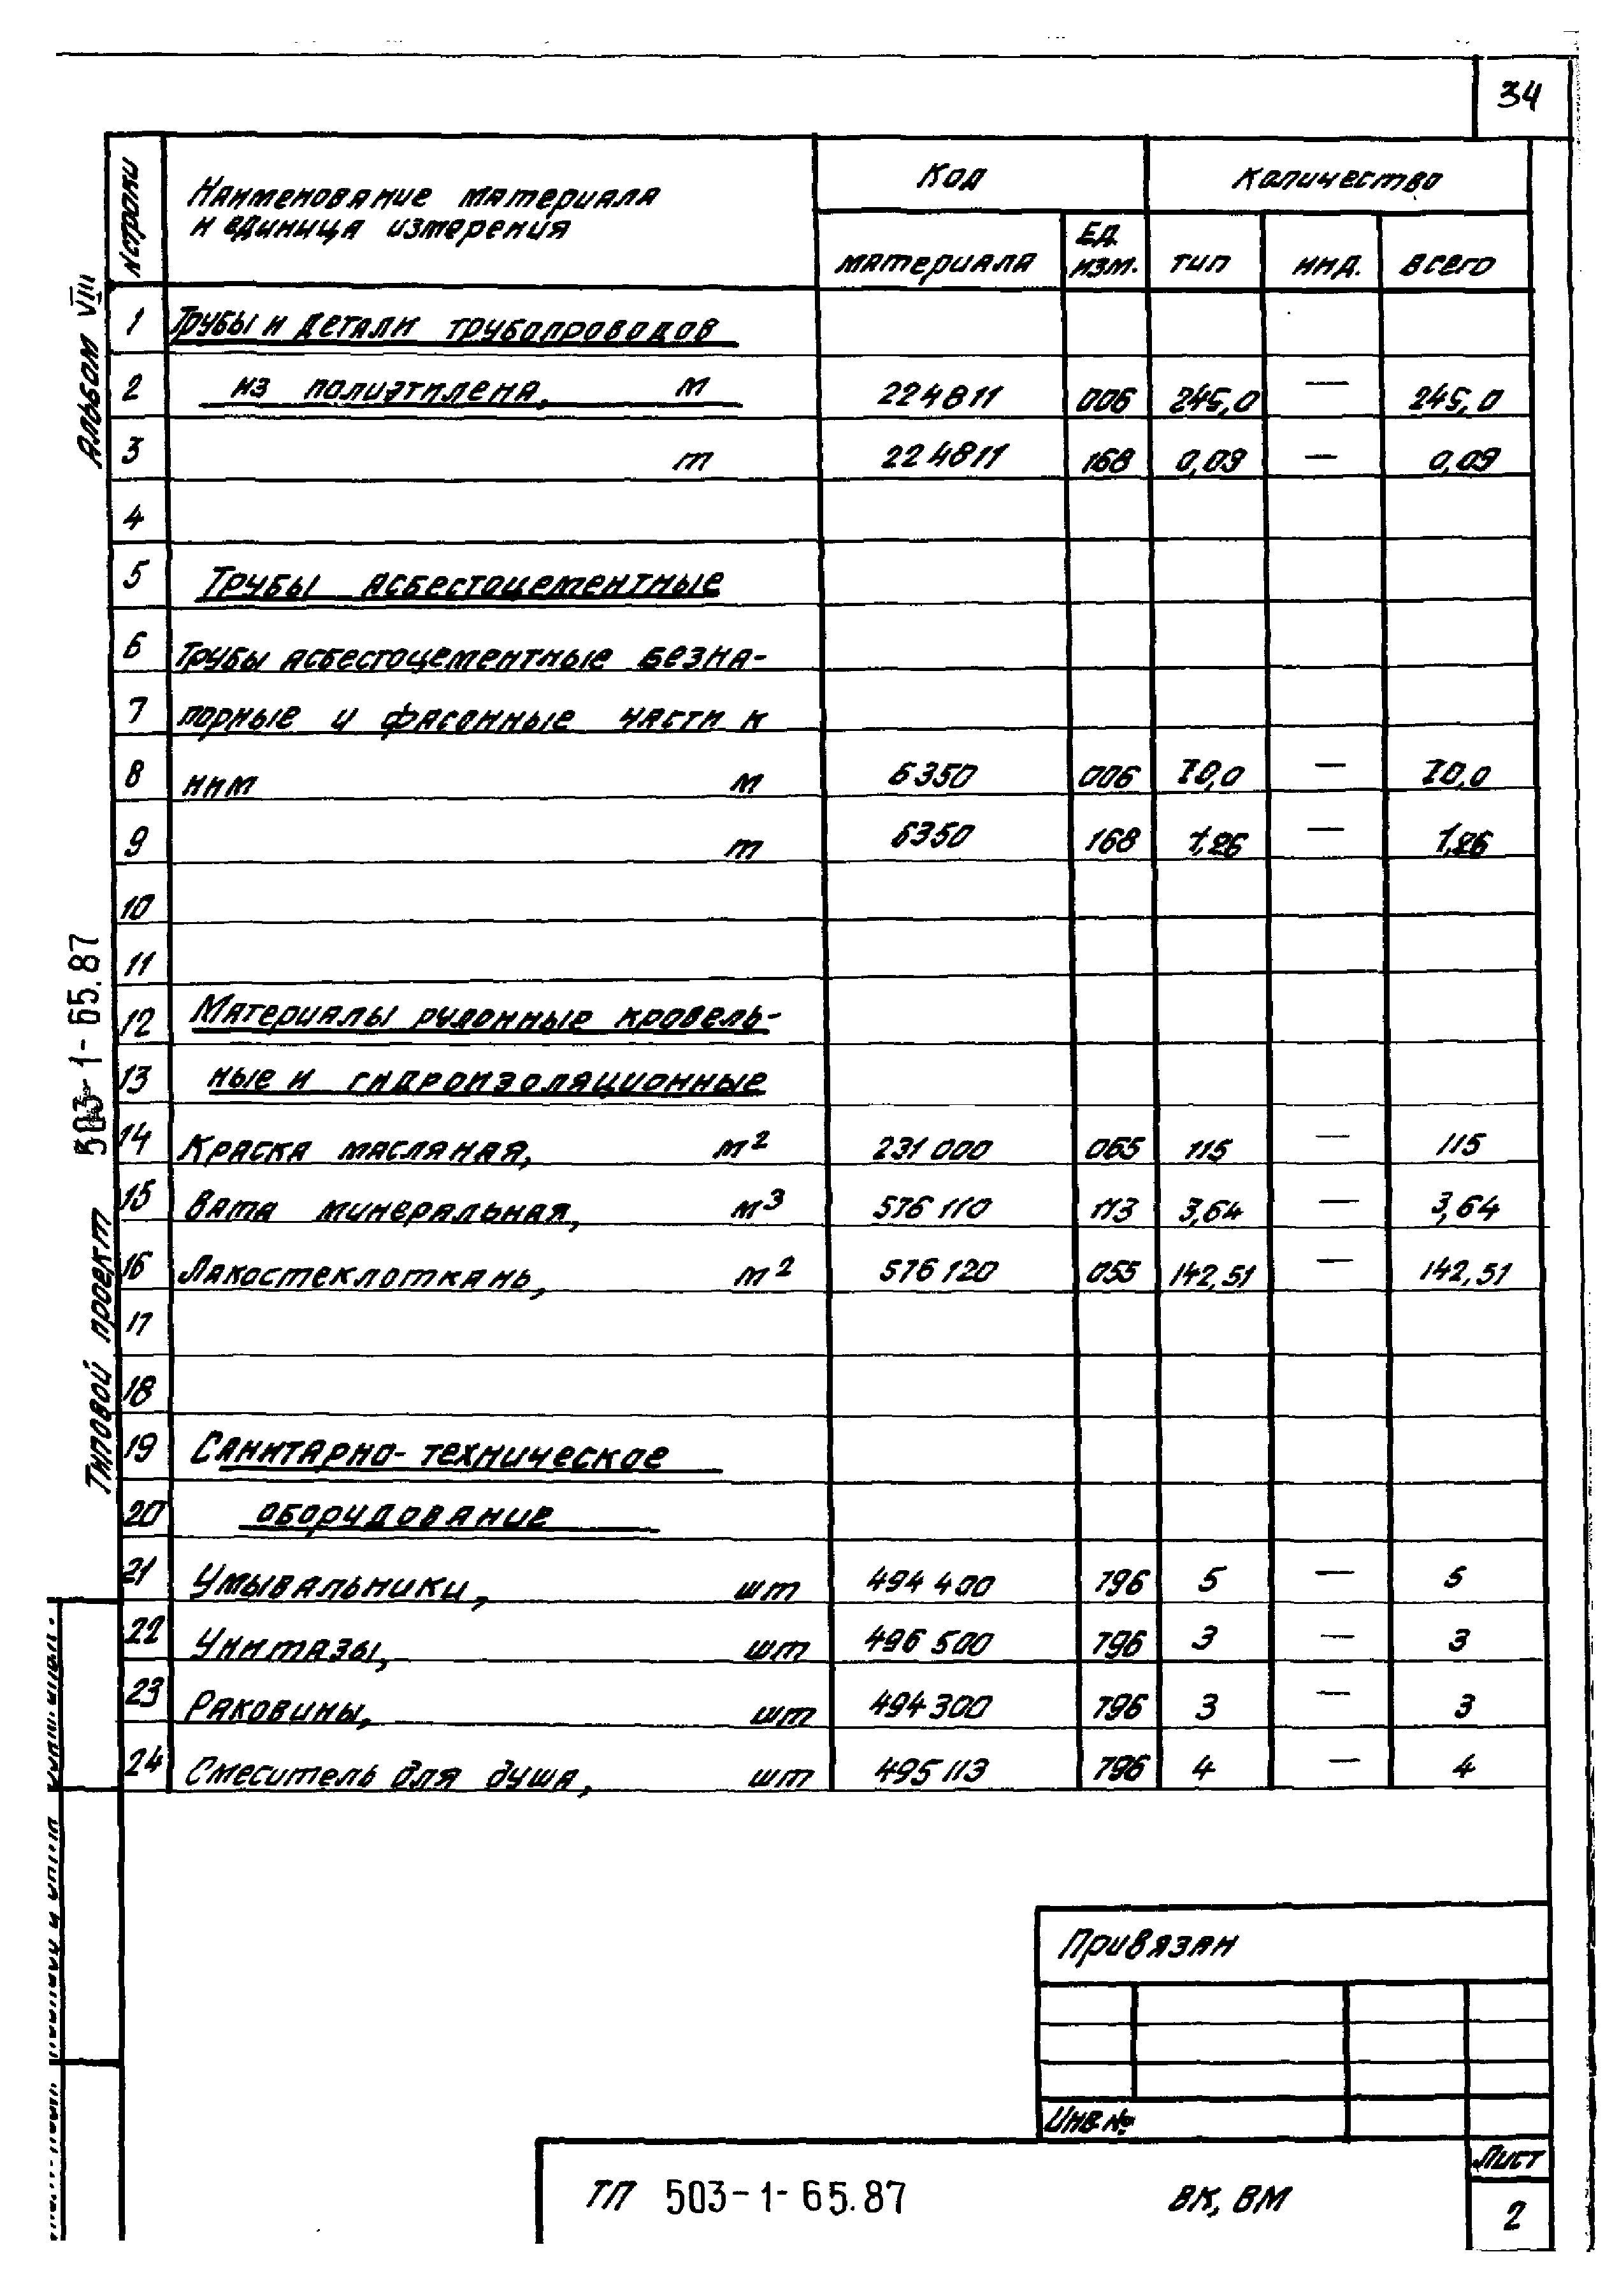 34
N строки
Наименование материала
и единица измерения
Код
Количество
материала
Ед. изм.
тип
инд.
всего
1 Трубы и детали трубопроводов
2 из полиэтилена, м 224811 006 245,0 — 245,0
3 т 224811 168 0,09 — 0,09
4
5 Трубы асбестоцементные
6 Трубы асбестоцементные безна-
7 порные и фасонные части к
8 ним м 6350 006 70,0 — 70,0
9 т 6350 168 1,26 — 1,26
10
11
12 Материалы рулонные кровель-
13 ные и гидроизоляционные
14 Краска масляная, м2 231 000 065 115 — 115
15 Вата минеральная, м3 576 110 113 3,64 — 3,64
16 Лакостеклоткань, м2 576 120 055 142,51 — 142,51
17
18
19 Санитарно-техническое
20 оборудование
21 Умывальники, шт 494 400 796 5 — 5
22 Унитазы, шт 496 500 796 3 — 3
23 Раковины, шт 494 300 796 3 — 3
24 Смеситель для душа, шт 495 113 796 4 — 4
Альбом VIII
Типовой проект 503-1-65.87
Привязан
Инв. №
ТП 503-1-65.87 ВК, ВМ
Лист
2